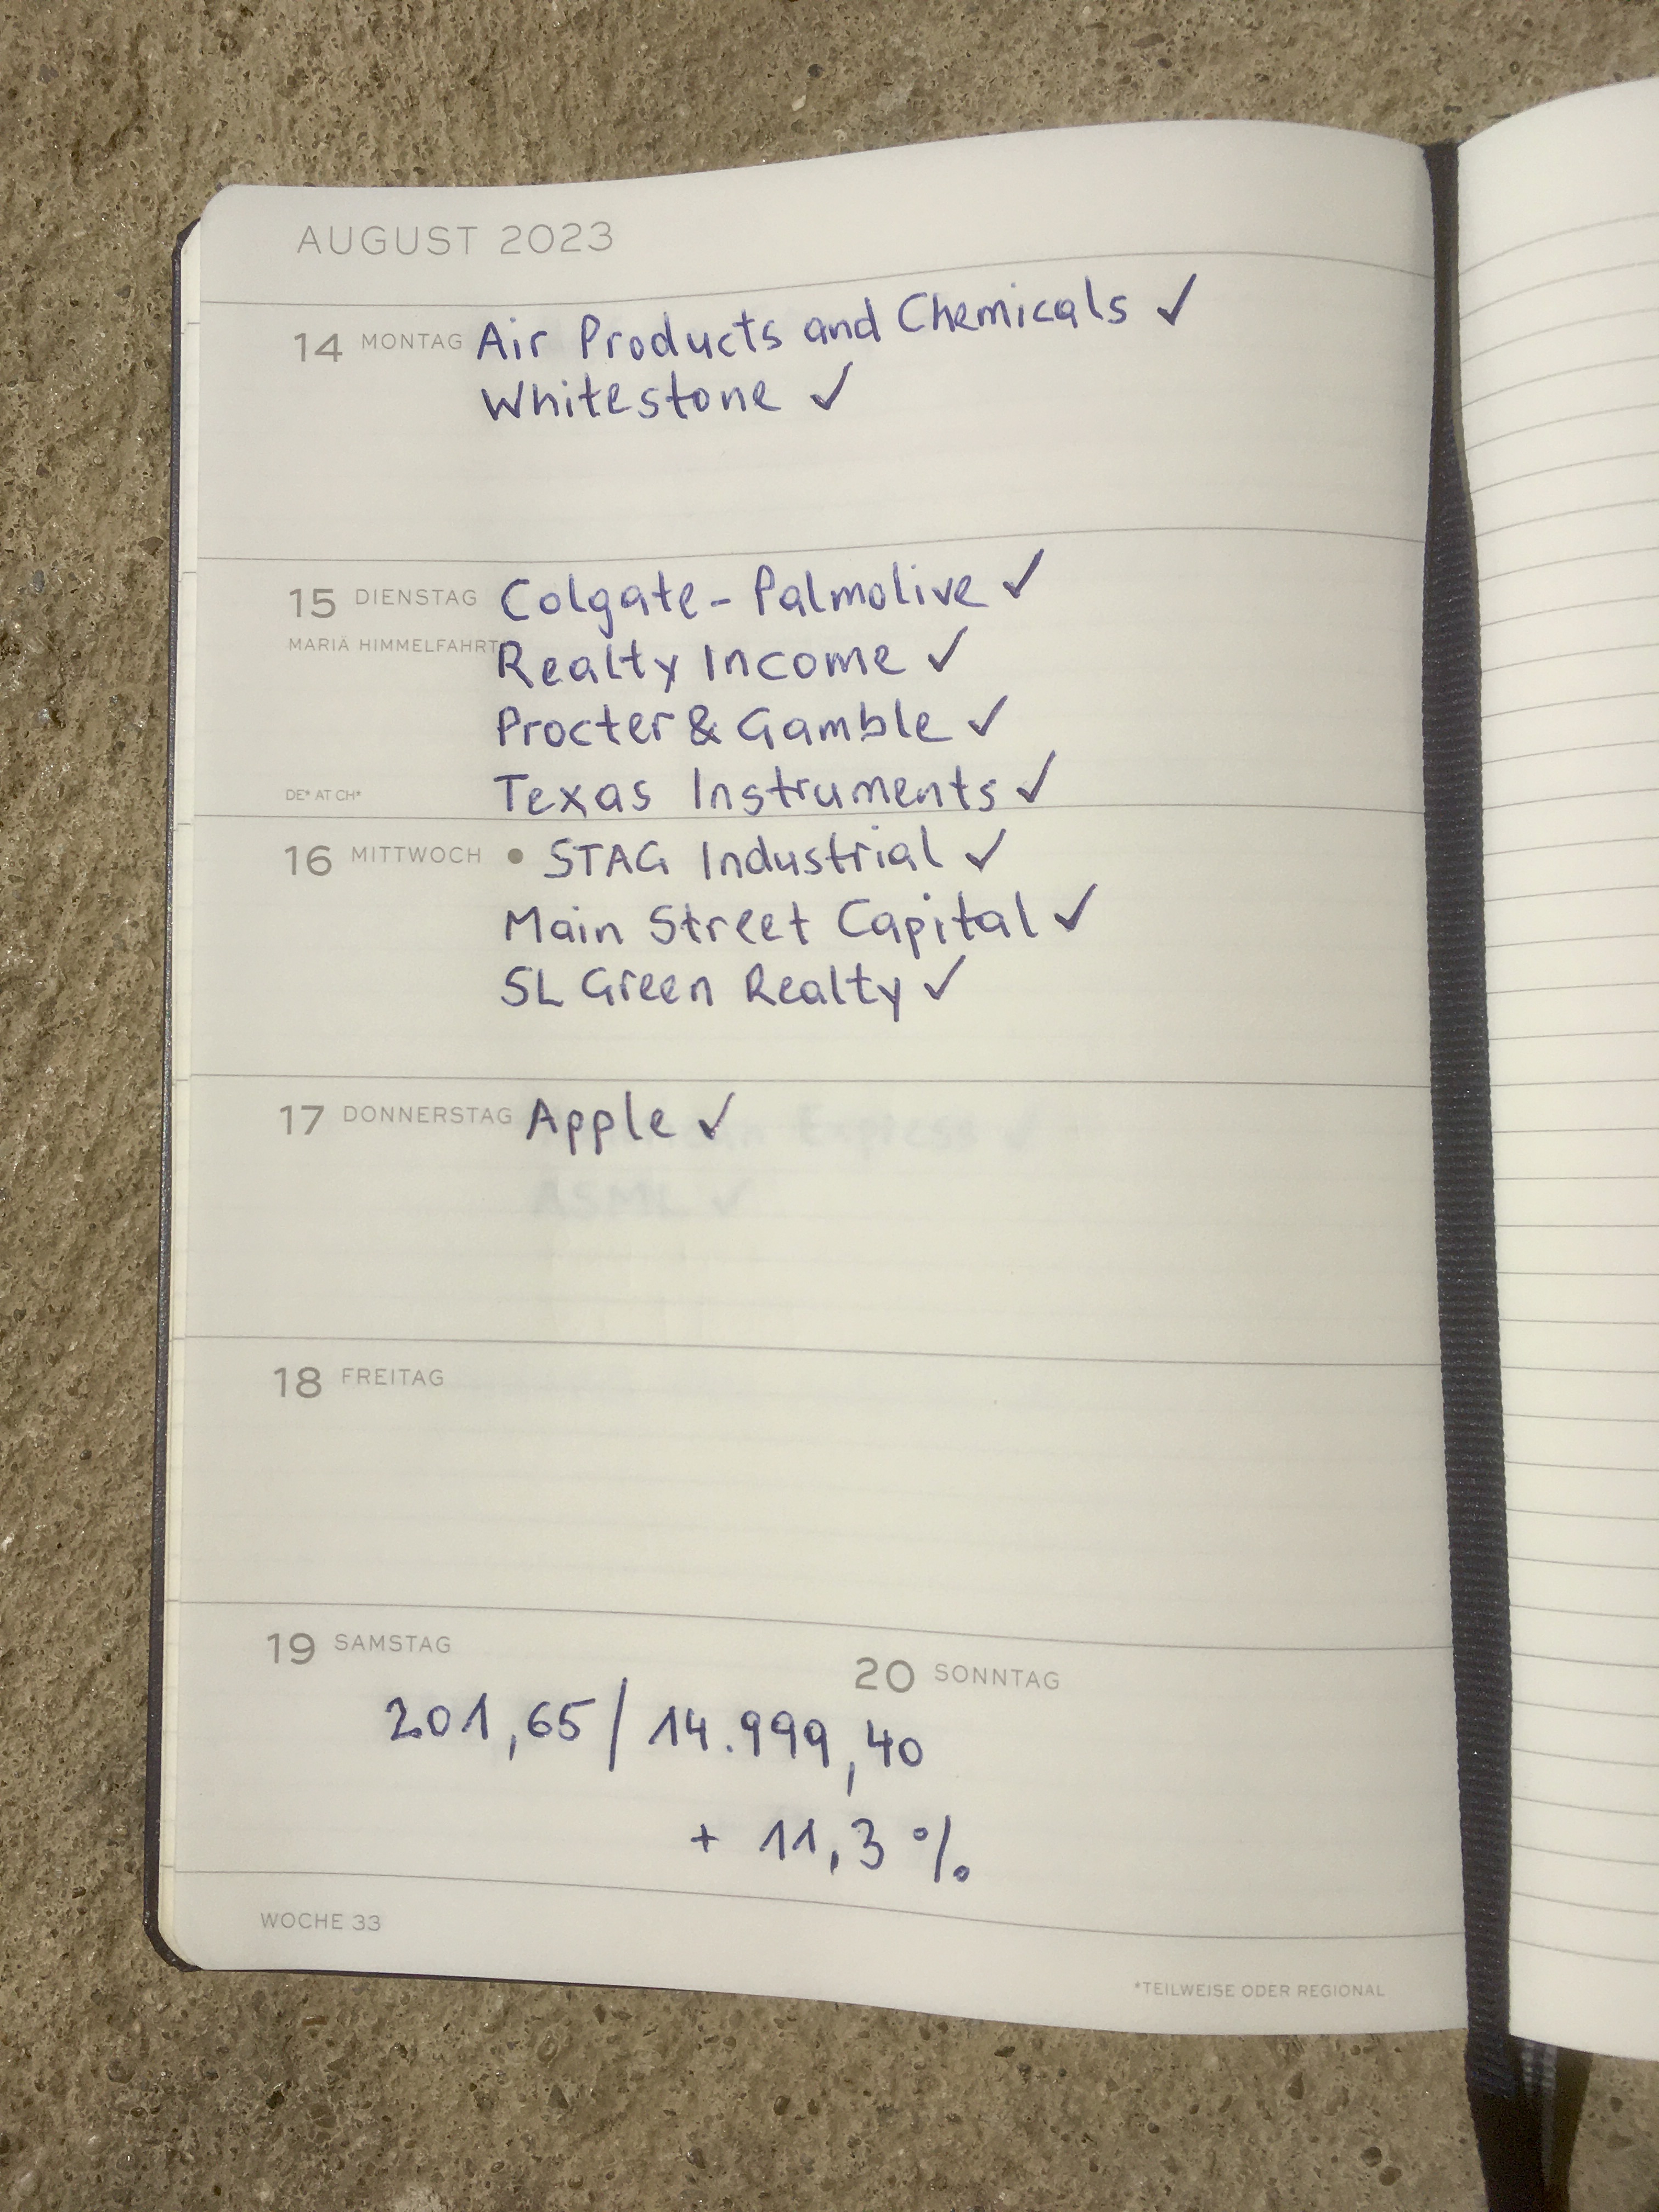 AUGUST 2023
14 MONTAG Air Products and Chemicals ✓
Whitestone ✓
15 DIENSTAG Colgate-Palmolive ✓
MARIÄ HIMMELFAHRT Realty Income ✓
Procter & Gamble ✓
DE* AT CH* Texas Instruments ✓
16 MITTWOCH ● STAG Industrial ✓
Main Street Capital ✓
SL Green Realty ✓
17 DONNERSTAG Apple ✓
ASML ✓
18 FREITAG
19 SAMSTAG
20 SONNTAG
201,65/14.999,40
+ 11,3 %
WOCHE 33
*TEILWEISE ODER REGIONAL